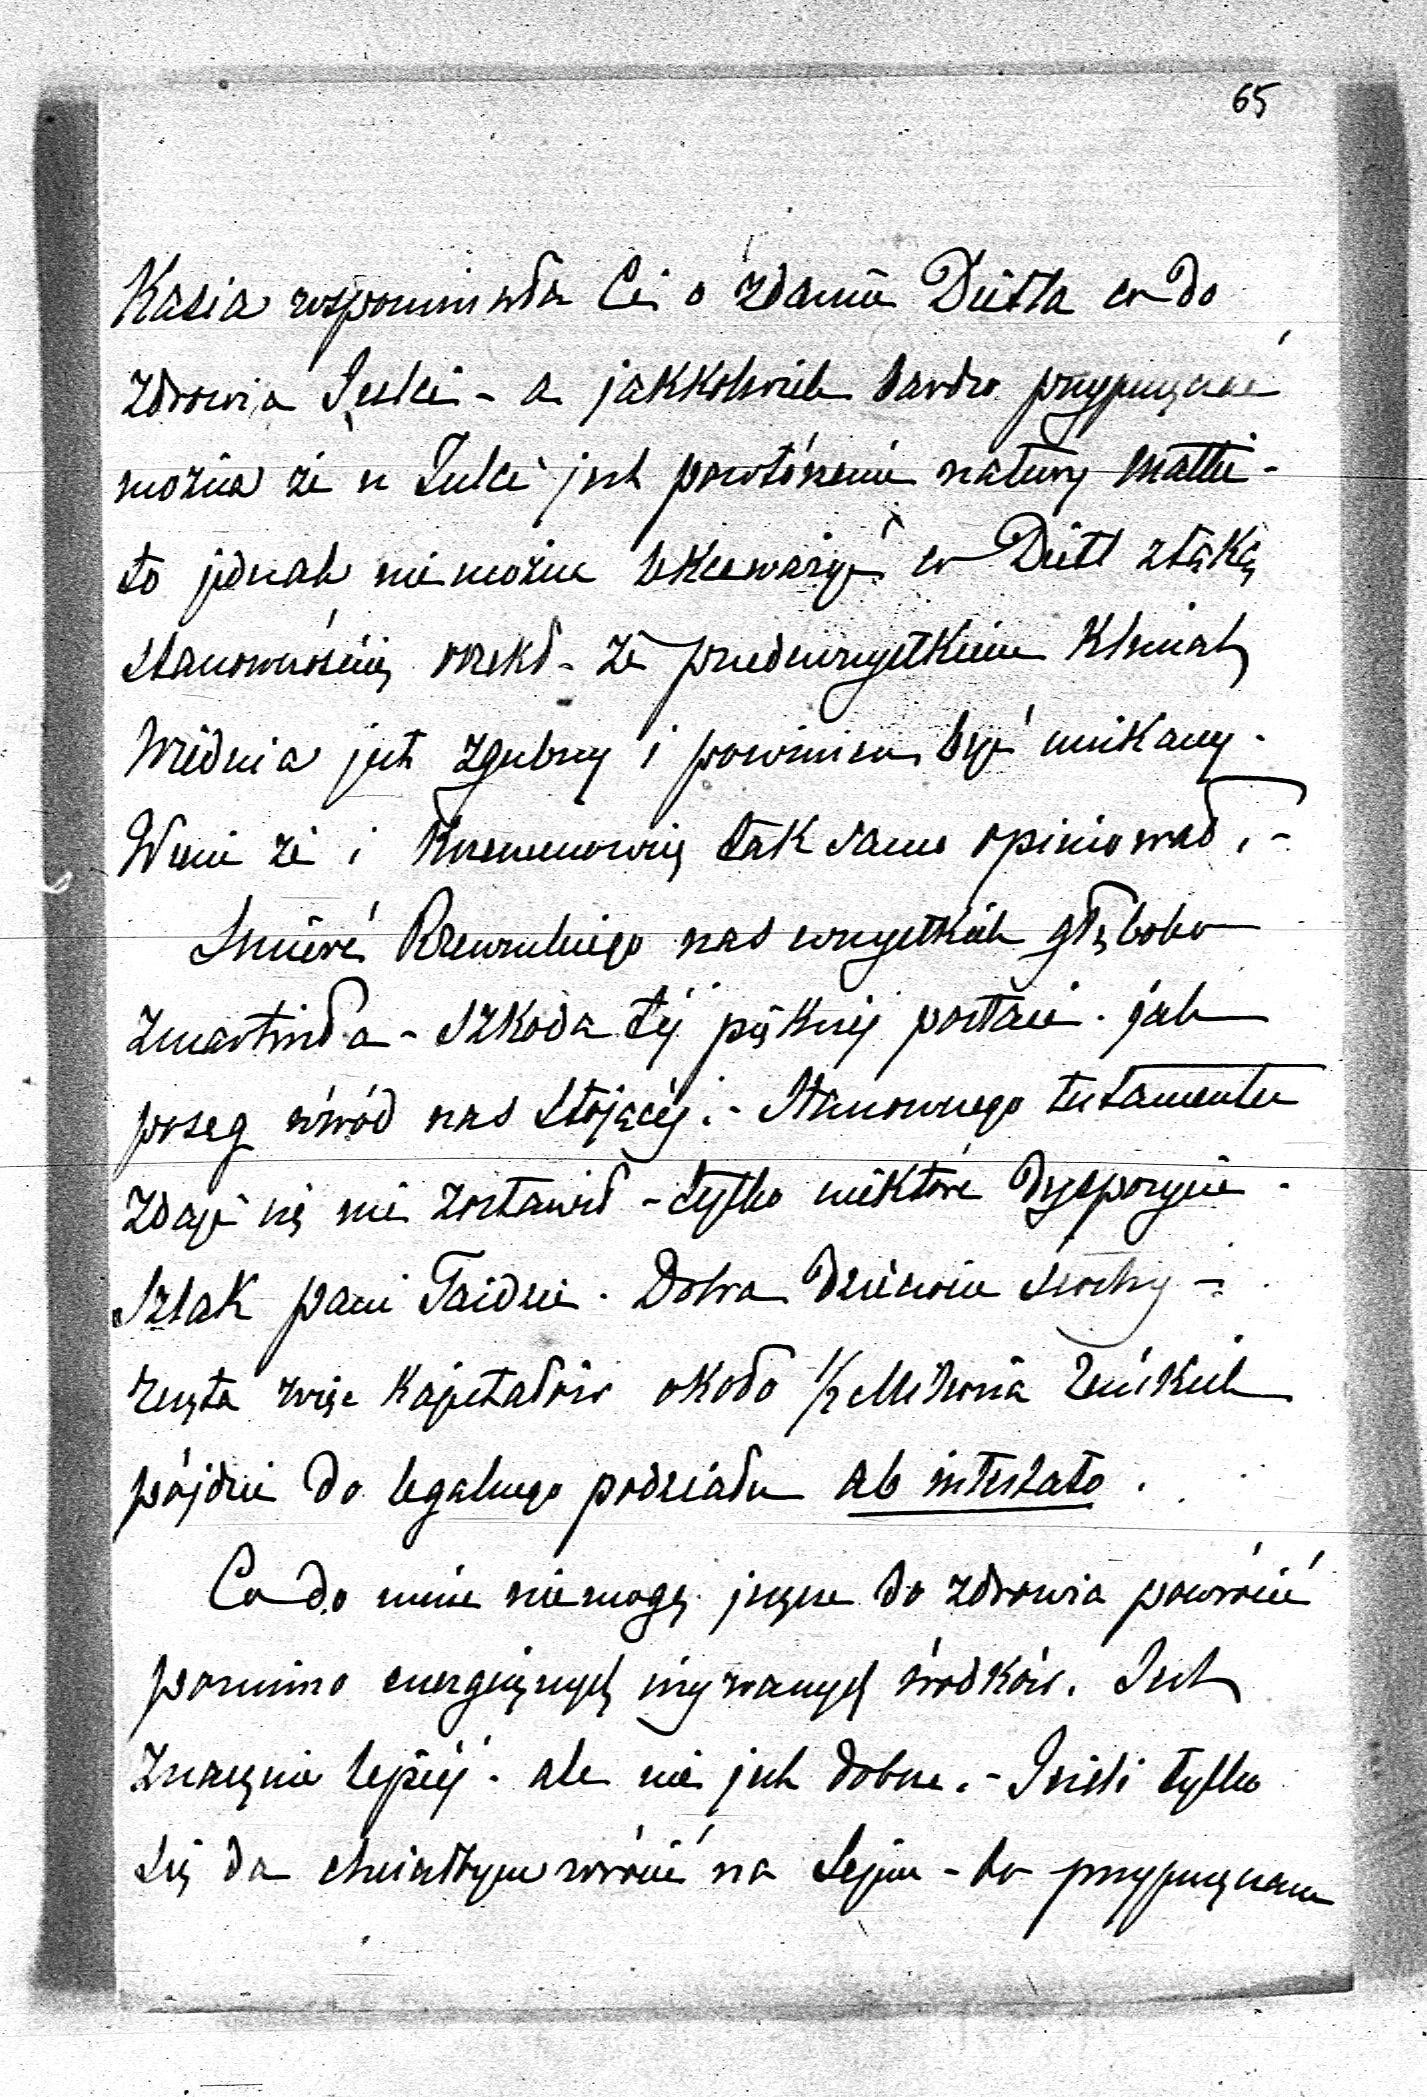 65
Kasia wspominała Ci o zdaniu Dietla co do
zdrowia Julci - a jakkolwiek bardzo przypuszczać
można że u Julci jest powtórzenie natury matki -
to jednak nie można lekceważyć co Dietl z taką
stanownością orzekł - że przedewszystkiem klimat
Wiednia jest zgubny i powinien być unikany -
Wiem że i tak samo opiniował. -
Śmierć Rzewuskiego nas wszystkich głęboko
zmartwiła - szkoda téj pięknéj postaci - jak
posąg wśród nas stojącéj. - Stanownego testamentu
zdaje się nie zostawił - tylko niektóre dyspozycje -
Szlak pani Taidzie. Dobra siostry -
reszta więc kapitałów około 1/2 Miliona reńskich
pójdzie do legalnego podziału ab intestato.
Co do mnie nie mogę jeszcze do zdrowia powrócić
pomimo energicznych używanych środków. Jest
znacznie lepiéj - ale nie jest dobrze. - Jeżeli tylko
się da chciałbym wrócić na Sejm - bo przypuszczam